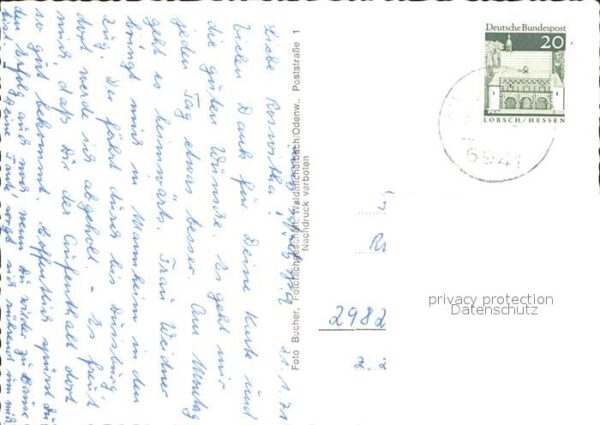 21.1.71
Liebe Roswitha!
Vielen Dank für Deine Karte und
die guten Wünsche. Es geht mir
jeden Tag etwas besser. Am Montag
geht es heimwärts. Frau Weidner
bringt mich in Mannheim in den
Zug. Der fährt durch bis Duisburg,
dort werde ich abgeholt. - Es freut
mich, daß Dir der Aufenthalt dort
so gut bekommt. Hoffentlich spürst Du
den Erfolg auch noch, wenn Du wieder zu Hause
bist.
Foto Bucher, Fotofachgeschäft, Waldmichelbach/Odenw., Poststraße 1
Nachdruck verboten
Deutsche Bundespost
20
LORSCH/HESSEN
6941
2982
privacy protection
Datenschutz